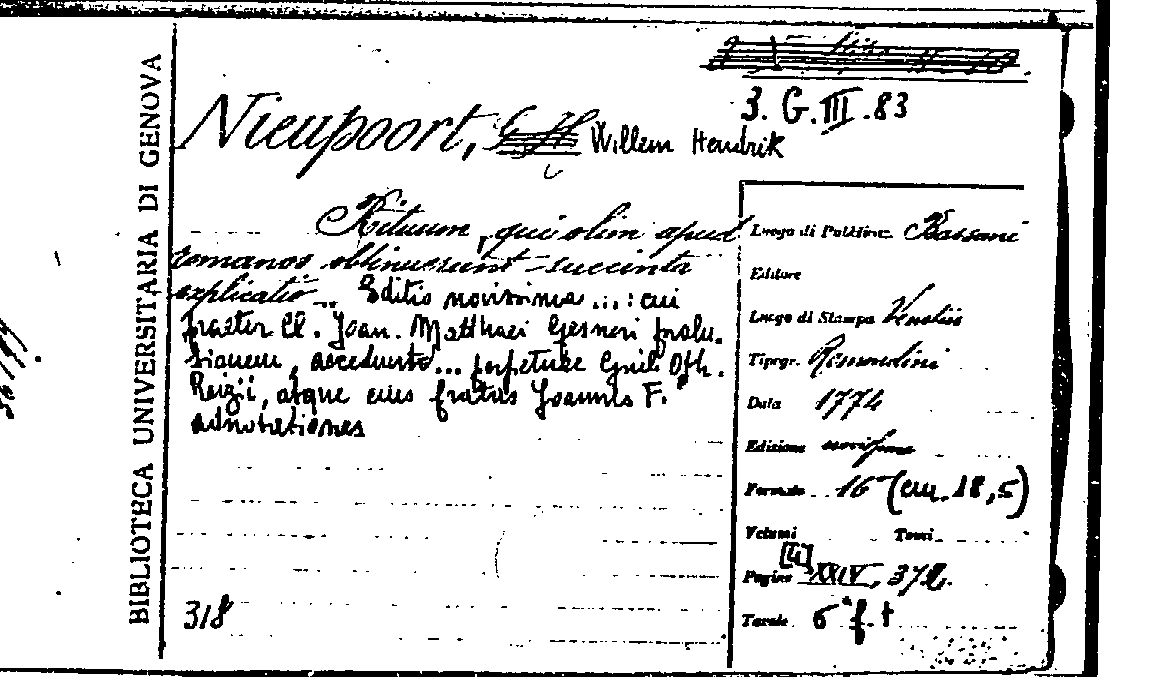 BIBLIOTECA UNIVERSITARIA DI GENOVA
3. G.III.83
Nieupoort, Willem Hendrik
Rituum, qui olim apud
romanos obtinuerunt succinta
explicatio... Editio novissima ...: cui
praeter Cl. Joan. Matthaei Gesneri prolu-
sionem, accedunt... perpetuae Guil. Oth.
Reizii, atque eius fratris Joannis F.
adnotationes
318
Luogo di Pubblic. Bassani
Editore
Luogo di Stampa Venetiis
Tipogr. Remondini
Data 1774
Edizione novissima
Formato 16° (cm. 18,5)
Volumi Tomi
[4]
Pagine XXIV, 372.
Tavole 6 f.t